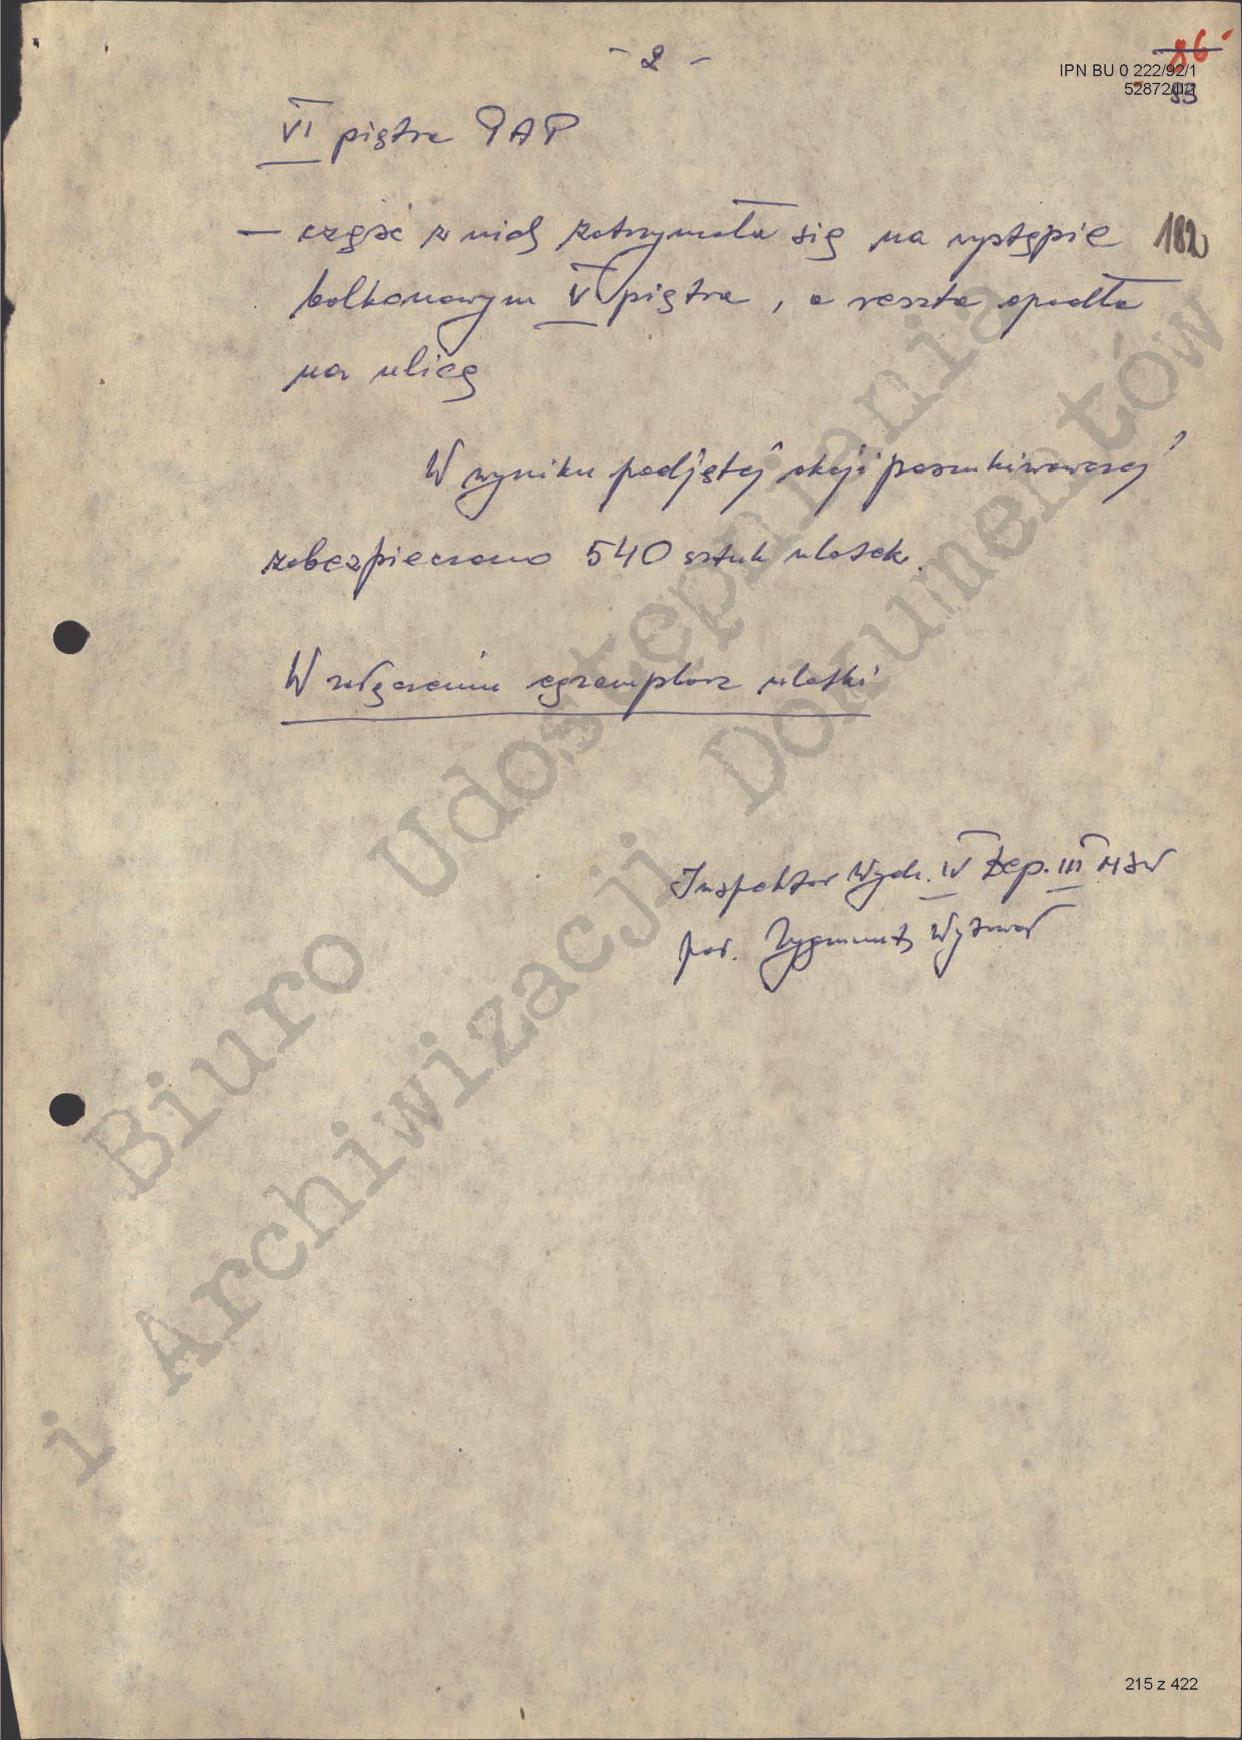 - 2 -
86
IPN BU 0 222/92/1
52872/II/1
VI piętra PAP
— część z nich zatrzymała się na występie
182
balkonowym V piętra, a reszta opadła
na ulicę
W wyniku podjętej akcji poszukiwawczej
zabezpieczono 540 sztuk ulotek.
W załączeniu egzemplarz ulotki
Inspektor Wydz. IV Dep. III MSW
por. Zygmunt
Biuro Udostępniania
i Archiwizacji Dokumentów
215 z 422